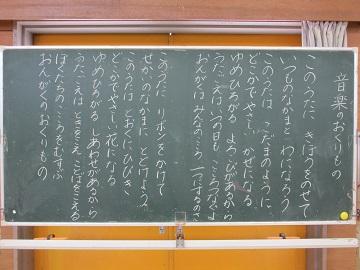 音楽のおくりもの
このうたに きぼうをのせて
いつものなかまと わになろう
このうたは こだまのように
どこかでやさしい かぜになる
ゆめひろがる よろこびがあるから
うたごえは いつの日も こころつなぐよ
おんがくは みんなのこころ 一つにするのさ
このうたに リボンをかけて
せかいのなかまに とどけよう
このうたは とおくにひびき
どこかでやさしい 花になる
ゆめひろがる しあわせがあるから
うたごえは ときをこえ ことばをこえる
ぼくたちの こころをむすぶ
おんがくのおくりもの